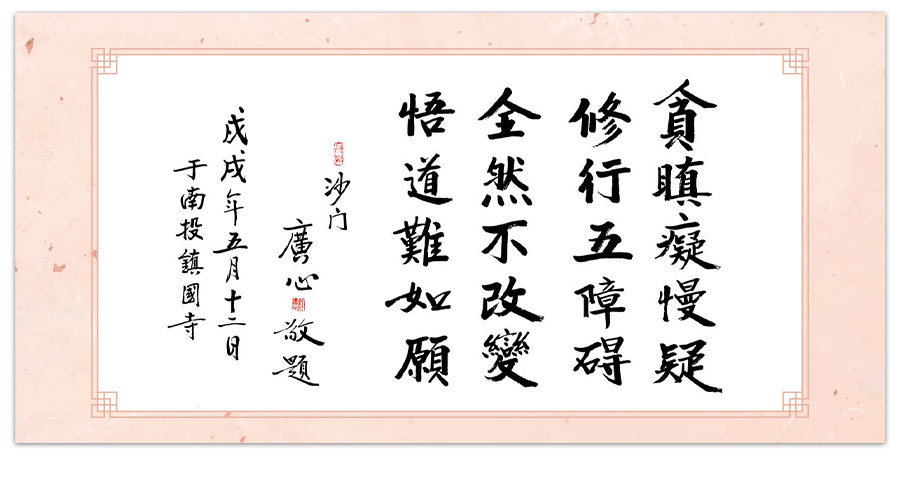 貪瞋癡慢疑
修行五障碍
全然不改變
悟道難如愿
沙门
廣心
敬題
戊戌年五月十二日
于南投鎮國寺